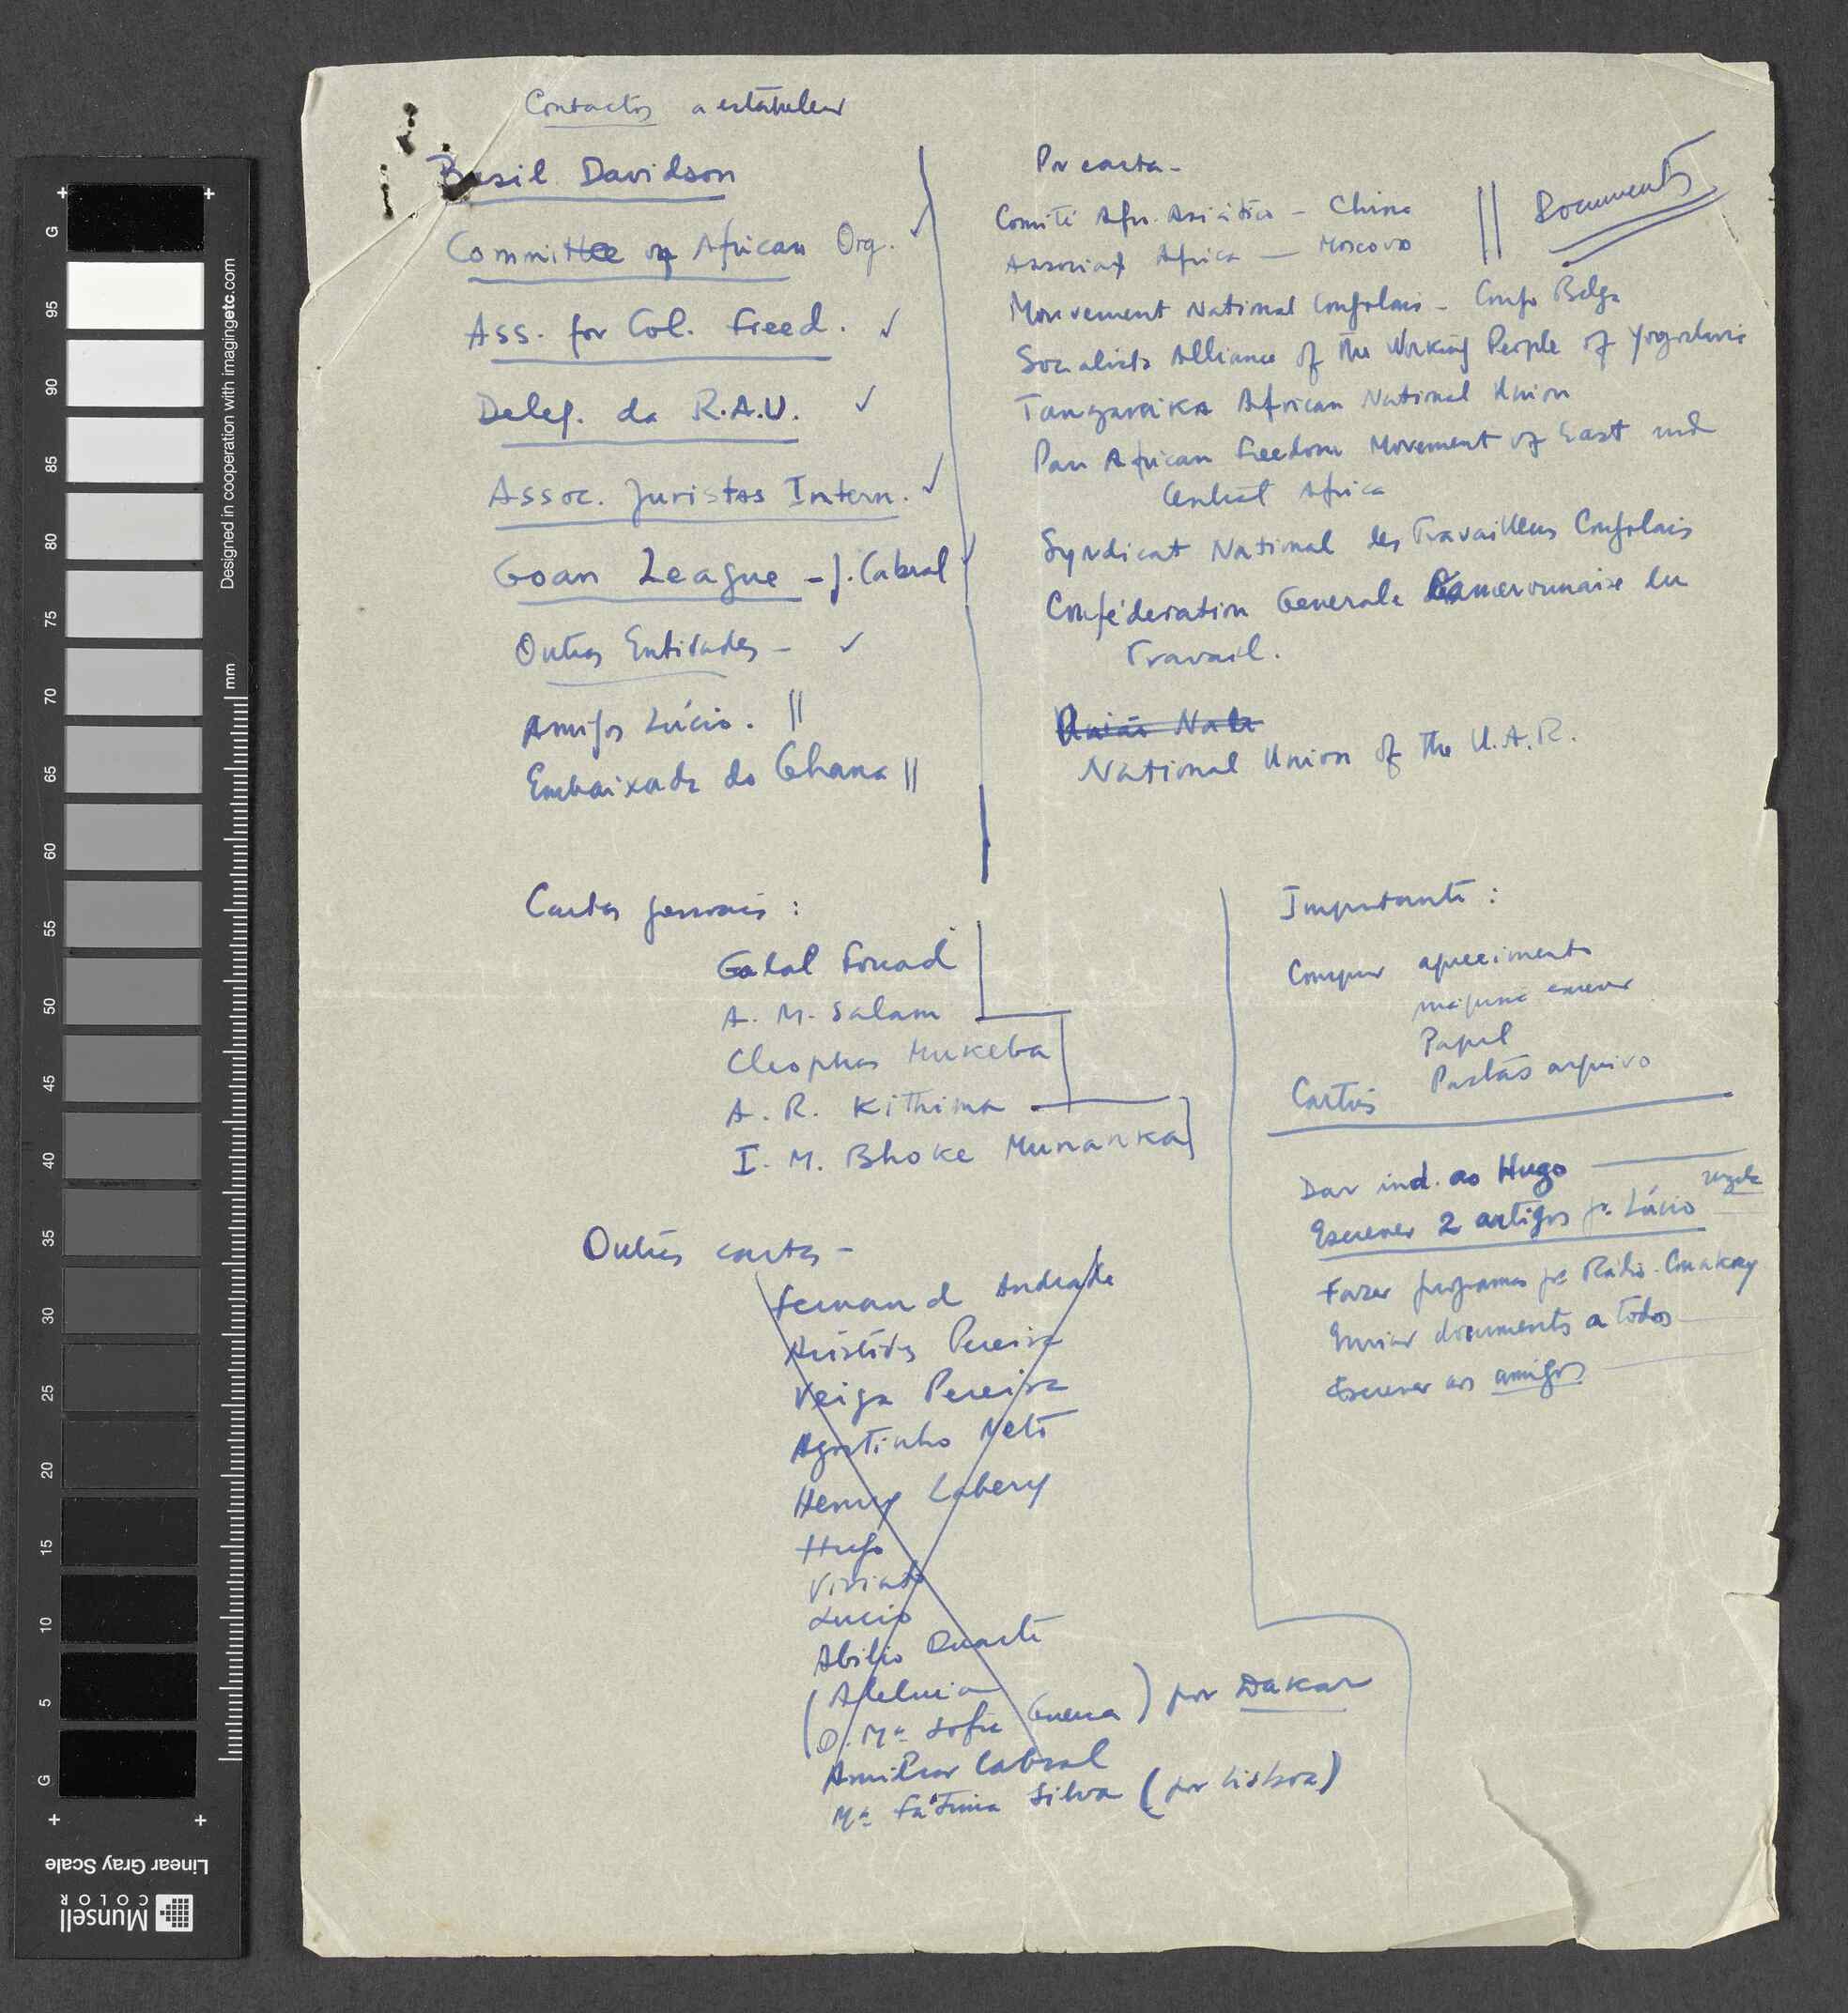 Contactos a estabelecer
Basil Davidson
Committee of African Org. ✓
Ass. for Col. Freed. ✓
Deleg. da R.A.U. ✓
Assoc. Juristas Intern. ✓
Goan League - J. Cabral ✓
Outras Entidades - ✓
Amigos Lúcio. ||
Embaixada do Ghana ||
Por carta -
Comité Afro-Asiático - China || Documentos
Associaç África - Moscovo
Mouvement National Congolais - Congo Belga
Socialists Alliance of the Working People of Yogoslavia
Tanganaika African National Union
Pan African Freedom Movement of East and
Central Africa
Syndicat National des Travailleurs Congolais
Confédération Generale Camerounaise du
Travail.
União Nale
National Union of the U.A.R.
Cartas pessoais :
Galal Fouad
A. M. Salam
Cleophas Mukeba
A. R. Kithima
I. M. Bhoke Munanka
Outras cartas -
Fernand Andrade
Aristides Pereira
Veiga Pereira
Agostinho Neto
Henry Labery
Hugo
Viriato
Lucio
Abilio Duarte
(Aleluia
D. Mª Sofia Guerra) por Dakar
Amilcar Cabral
Mª Fátima Silva (por Lisboa)
Importante :
Comprar
máquina escrever
Papel
Pastas arquivo
Cartões
Dar ind. ao Hugo
Escrever 2 artigos pª Lúcio
Fazer programas pª Rádio-Conakry
Enviar documentos a todos
Escrever aos amigos
G
95
90
85
80
75
70
65
60
55
50
45
40
35
30
25
20
15
10
5
G
mm
Designed in cooperation with imagingetc.com
Linear Gray Scale
Munsell
COLOR